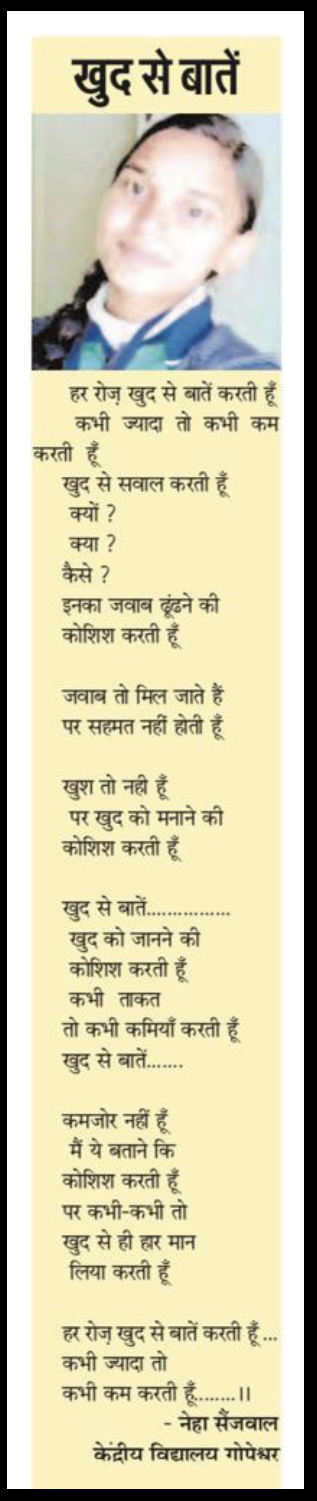 खुद से बातें
हर रोज़ खुद से बातें करती हूँ
कभी ज्यादा तो कभी कम
करती हूँ
खुद से सवाल करती हूँ
क्यों ?
क्या ?
कैसे ?
इनका जवाब ढूंढने की
कोशिश करती हूँ
जवाब तो मिल जाते हैं
पर सहमत नहीं होती हूँ
खुश तो नही हूँ
पर खुद को मनाने की
कोशिश करती हूँ
खुद से बातें................
खुद को जानने की
कोशिश करती हूँ
कभी ताकत
तो कभी कमियाँ करती हूँ
खुद से बातें.......
कमजोर नहीं हूँ
मैं ये बताने कि
कोशिश करती हूँ
पर कभी-कभी तो
खुद से ही हार मान
लिया करती हूँ
हर रोज़ खुद से बातें करती हूँ ...
कभी ज्यादा तो
कभी कम करती हूँ........।।
- नेहा सैंजवाल
केंद्रीय विद्यालय गोपेश्वर